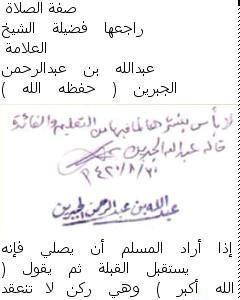 صفة الصلاة
راجعها فضيلة الشيخ
العلامة
عبدالله بن عبدالرحمن
الجبرين ( حفظه الله )
لا بأس بنشرها لما فيها من التعليم والفائدة
قاله عبدالله الجبرين
١٤٢٠/٨/٢٠
عبدالله بن عبدالرحمن الجبرين
إذا أراد المسلم أن يصلي فإنه
يستقبل القبلة ثم يقول (
الله أكبر ) وهي ركن لا تنعقد